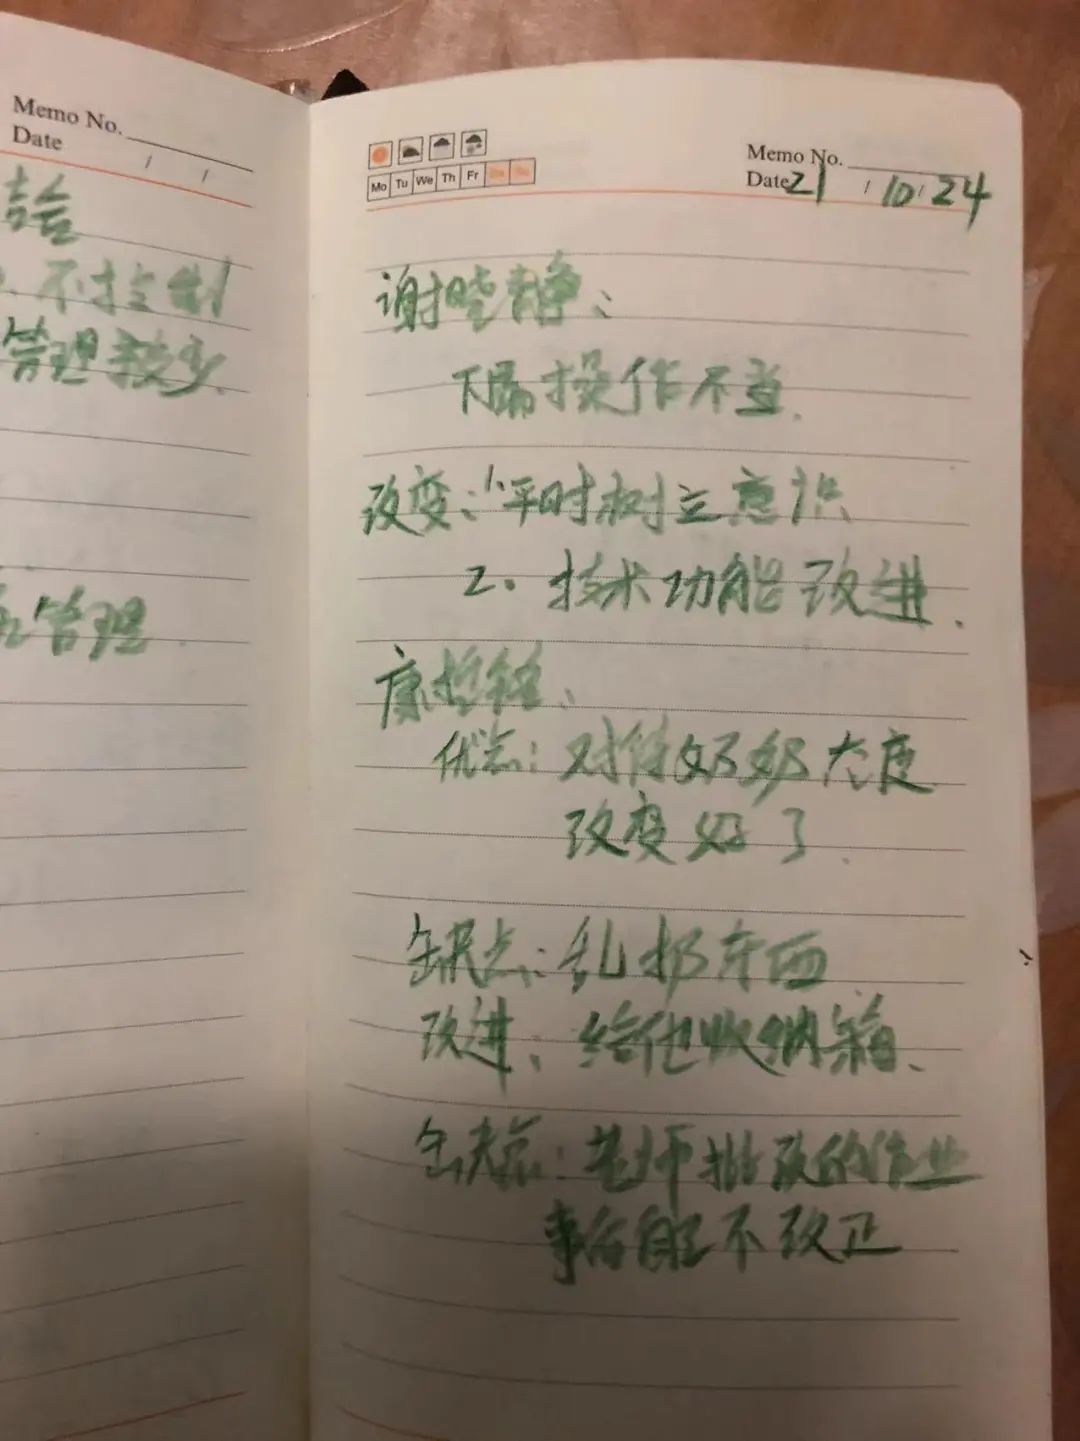 Memo No.
Date / /
不控制
管理较少
管理
Mo Tu We Th Fr Sa Su
Memo No.
Date 21 / 10 / 24
谢晓静、
操作不当.
改变:1、平时树立意识
2. 技术功能改进.
优点: 对待奶奶态度
改变好了.
缺点: 乱扔东西
改进、给他收纳箱、
缺点: 老师批改的作业
事后自己不改正